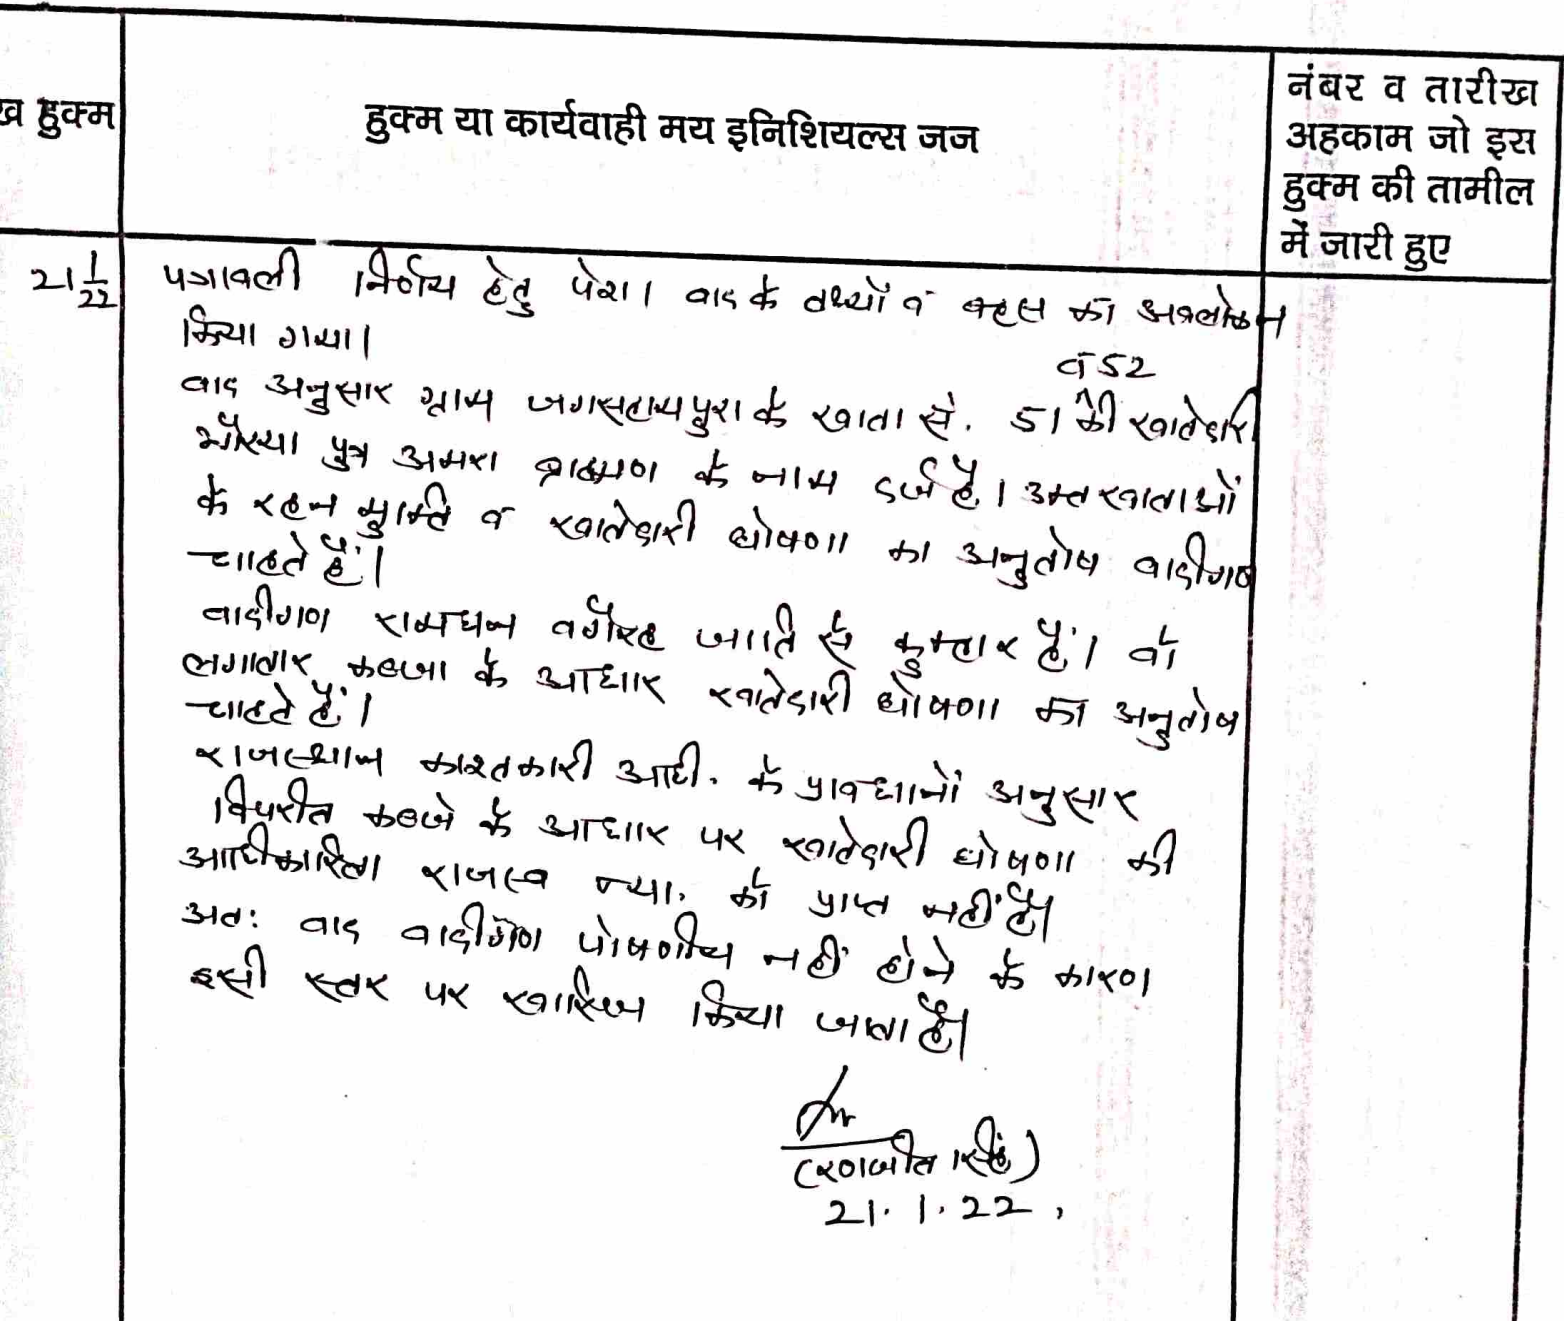 ख हुक्म
हुक्म या कार्यवाही मय इनिशियल्स जज
नंबर व तारीख
अहकाम जो इस
हुक्म की तामील
में जारी हुए
21 1/22
पत्रावली निर्णय हेतु पेश। वाद के तथ्यों व बहस का अवलोकन
किया गया।
व 52
वाद अनुसार ग्राम जगसहायपुरा के खाता सं. 51 की खातेदारी
भौरया पुत्र अमरा ब्राह्मण के नाम दर्ज है। उक्त खाताओं
के रहन मुक्ति व खातेदारी घोषणा का अनुतोष वादीगण
चाहते हैं।
वादीगण रामधन वगैरह जाति से कुम्हार हैं। वो
लगातार कब्जा के आधार खातेदारी घोषणा का अनुतोष
चाहते हैं।
राजस्थान काश्तकारी अधि. के प्रावधानों अनुसार
विपरीत कब्जे के आधार पर खातेदारी घोषणा की
अधिकारिता राजस्व न्या. को प्राप्त नहीं है।
अतः वाद वादीगण पोषणीय नहीं होने के कारण
इसी स्तर पर खारिज किया जाता है।
(रणजीत सिंह)
21.1.22